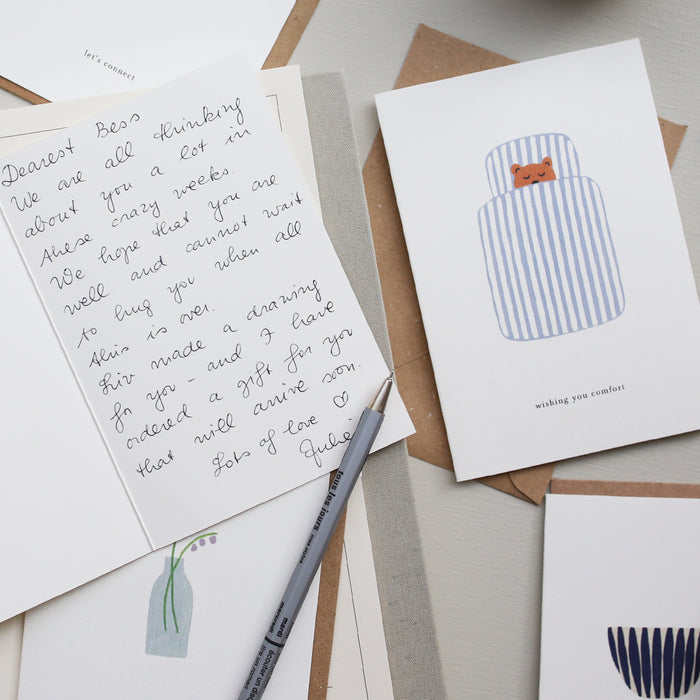 let's connect
Dearest Bess
We are all thinking
about you a lot in
these crazy weeks.
We hope that you are
well and cannot wait
to hug you when all
this is over.
Liv made a drawing
for you - and I have
ordered a gift for you
that will arrive soon.
Lots of love ♡
Julie
wishing you comfort
tous les jours
mardi
écouter un disque
mercredi